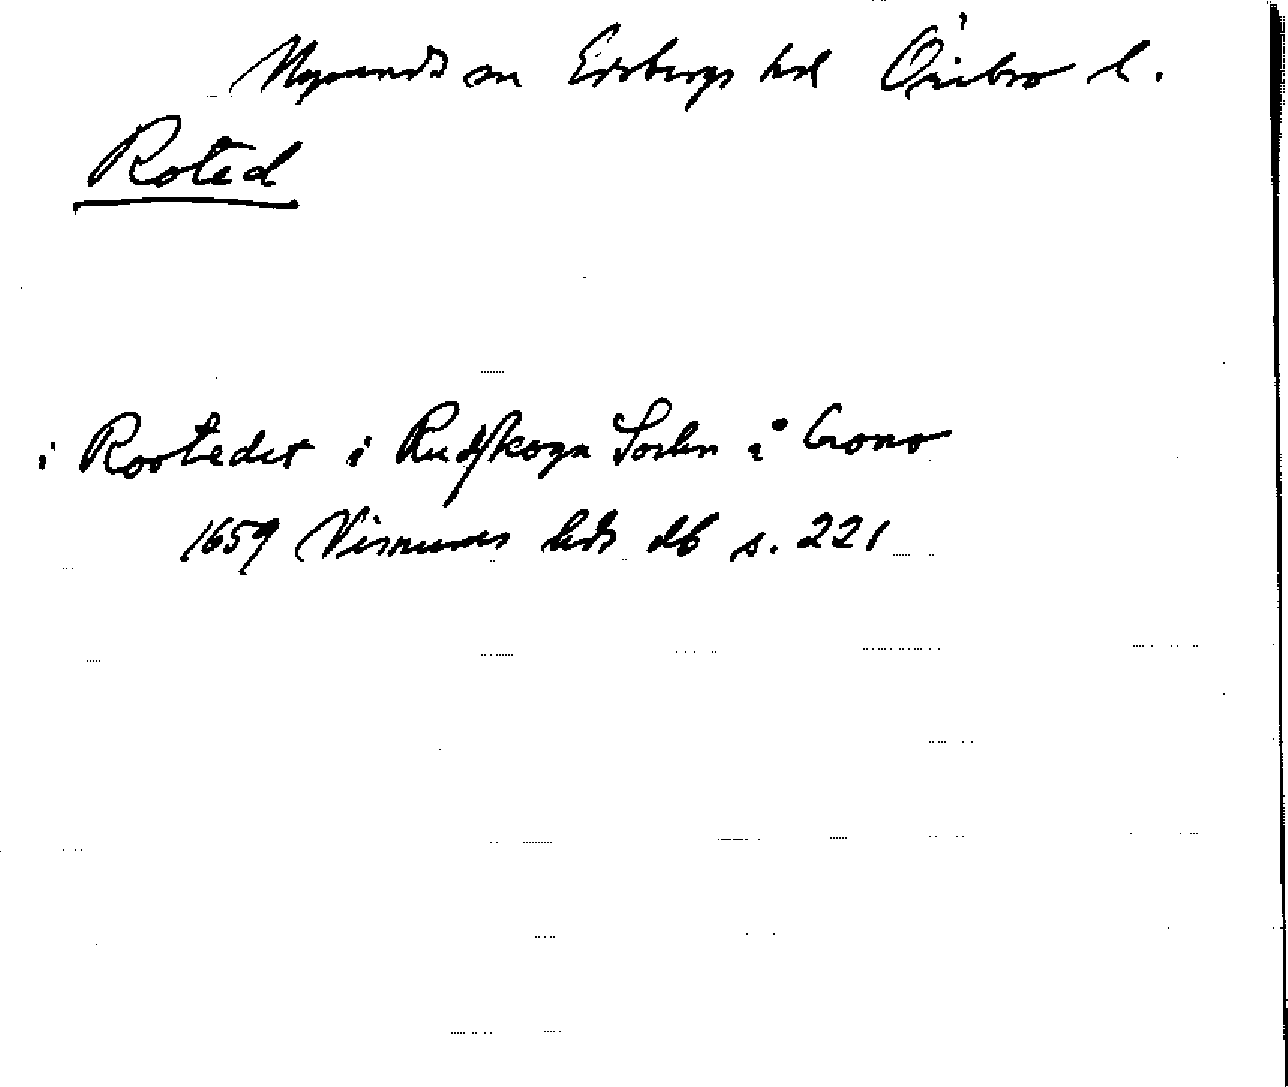 Nysunds sn Edsbergs hd Örebro l.
Roted
i Rootedet i Rudskoga Sochn å Crono
1659 Visnums hds db s. 221